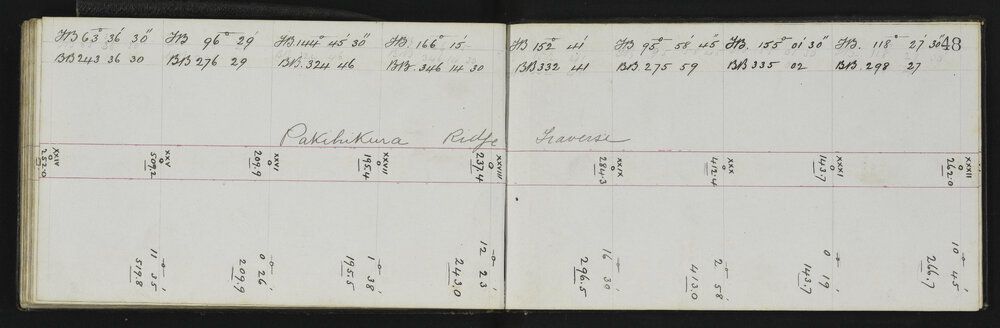 FB 63° 36' 30" FB 96° 29' FB. 144° 45' 30" FB. 166° 15' FB 152° 41' FB 95° 58' 45" FB. 155° 01' 30" FB. 118° 27' 30" 48
BB 243 36 30 BB 276 29 BB. 324 46 BB. 346 14 30 BB 332 41 BB 275 59 BB 335 02 BB. 298 27
Pakihikura Ridge Traverse
XXIV
252.0
XXV
509.2
XXVI
209.9
XXVII
195.4
XXVIII
237.4
XXIX
284.3
XXX
412.4
XXXI
143.7
XXXII
262.0
11° 35'
519.8
0° 26'
209.9
1° 38'
195.5
12° 23'
243.0
16° 30'
296.5
2° 58'
413.0
0° 19'
143.7
10° 45'
266.7